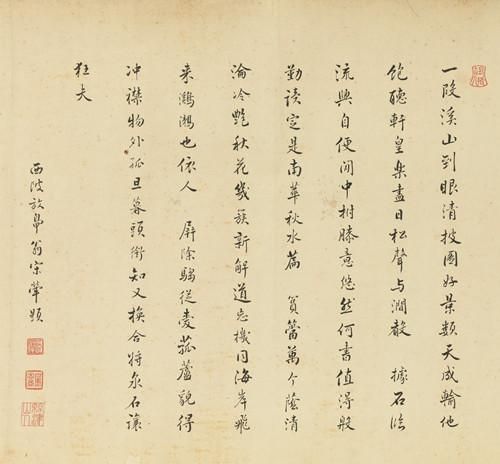 一段溪山到眼清披圖好景類天成輸他
飽聽軒皇樂盡日松聲與澗聲 據石臨
流興自便閒中膝意悠然何書值得殷
勤讀定是南華秋水篇 篔簹萬个蔭清
淪冷艷秋花幾族新解道忘機同海岸飛
来鸂鶒也依人 屏除騶從愛菰蘆貌得
冲襟物外孤旦暮頭銜知又換合將泉石讓
狂夫
西陂放鴨翁宋犖題